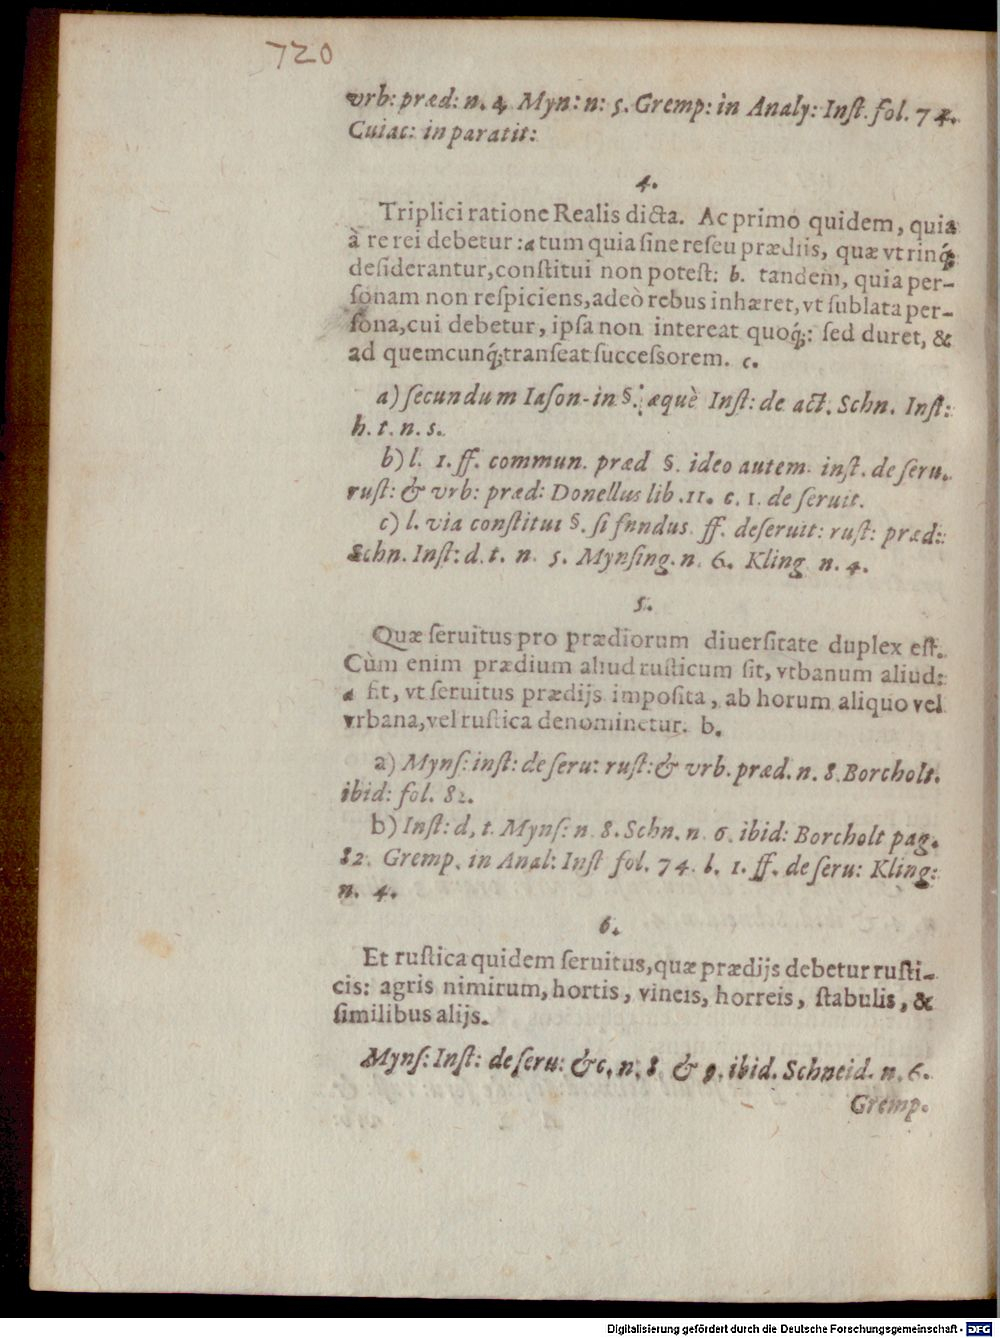 720
vrb: præd: n. 4. Myn: n: 5. Gremp: in Analy: Inſt. fol. 74.
Cuiac: in paratit:
4.
Triplici ratione Realis dicta. Ac primo quidem, quia
à re rei debetur: a tum quia ſine re ſeu prædiis, quæ vtrinq́;
deſiderantur, conſtitui non poteſt: b. tandem, quia per-
ſonam non reſpiciens, adeò rebus inhæret, vt ſublata per-
ſona, cui debetur, ipſa non intereat quoq́;: ſed duret, &
ad quemcunq́; tranſeat ſucceſſorem. c.
a) ſecundum Iaſon-in §. æquè Inſt: de act. Schn. Inſt:
h. t. n. 5.
b) l. 1. ff. commun. præd §. ideo autem. inſt. de ſeru.
ruſt: & vrb: præd: Donellus lib. 11. c. 1. de ſeruit.
c) l. via conſtitui §. ſi fnndus ff. de ſeruit: ruſt: præd:
Schn. Inſt: d. t. n. 5. Mynſing. n. 6. Kling n. 4.
5.
Quæ ſeruitus pro prædiorum diuerſitate duplex eſt.
Cùm enim prædium aliud ruſticum ſit, vrbanum aliud:
a fit, vt ſeruitus prædijs impoſita, ab horum aliquo vel
vrbana, vel ruſtica denominetur. b.
a) Mynſ: inſt: de ſeru: ruſt: & vrb. præd. n. 8. Borcholt.
ibid: fol. 82.
b) Inſt: d, t. Mynſ: n. 8. Schn. n. 6. ibid: Borcholt pag.
82. Gremp. in Anal: Inſt fol. 74. l. 1. ff. de ſeru: Kling:
n. 4.
6.
Et ruſtica quidem ſeruitus, quæ prædijs debetur ruſti-
cis: agris nimirum, hortis, vineis, horreis, ſtabulis, &
ſimilibus alijs.
Mynſ: Inſt: de ſeru: &c. n. 8. & 9. ibid. Schneid. n. 6.
Gremp.
Digitalisierung gefördert durch die Deutsche Forschungsgemeinschaft - DFG